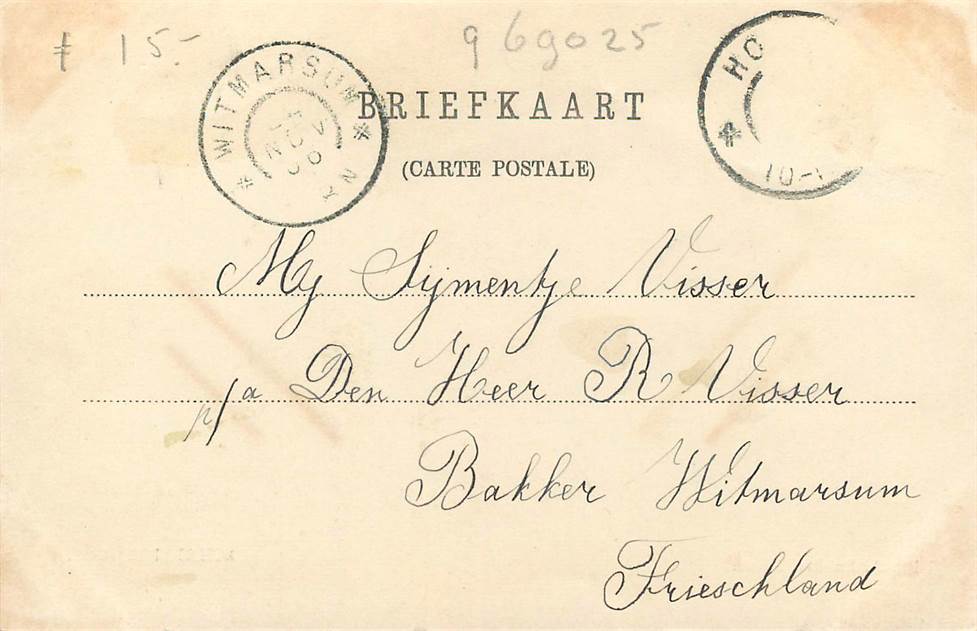 ƒ 15.- 969025
WITMARSUM
HO
BRIEFKAART
(CARTE POSTALE)
10-
Mej Sijmentje Visser
p/a Den Heer R Visser
Bakker Witmarsum
Frieschland